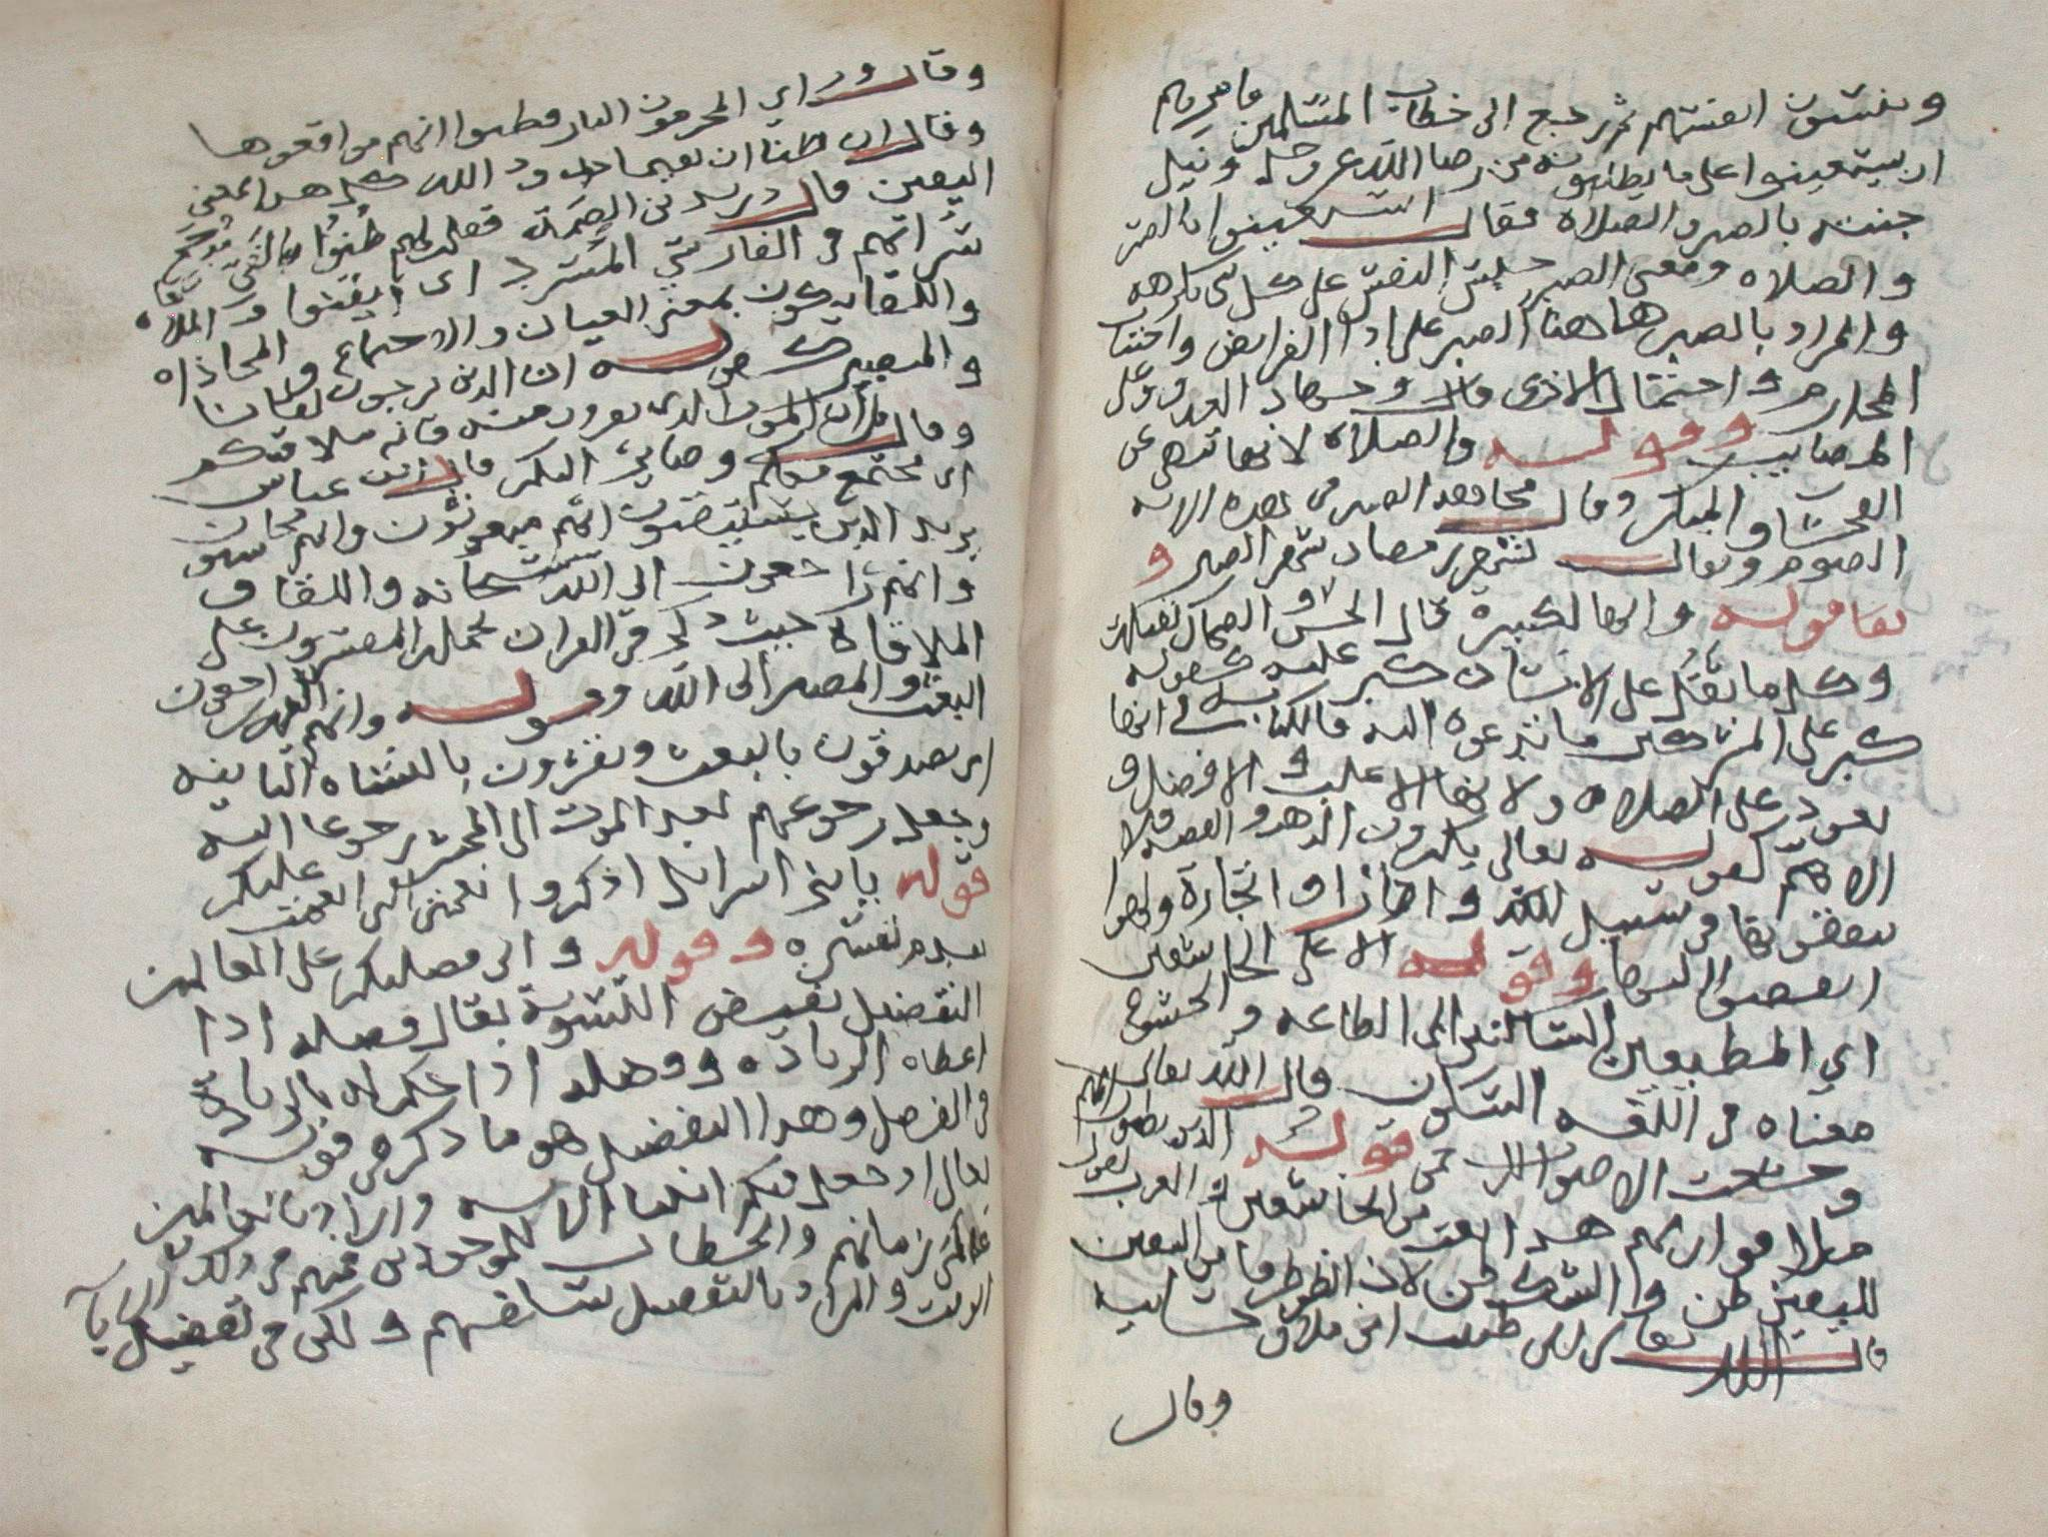 وينسون انفسهم ثم رجع الى خطاب المسلمين فامرهم
ان يستعينوا على ما يطلبونه من رضا الله عز وجل ونيل
جنته بالصبر والصلاه فقال استعينوا بالصبر
والصلاه ومعنى الصبر حبس النفس على كل شي تكرهه
والمراد بالصبر هاهنا الصبر على ادا الفرايض واجتناب
المحارم واحتمال الاذى وجهاد العدو وعلى
المصايب وقوله والصلاه لانها تنهى عن
الفحشا والمنكر وقال مجاهد الصبر في هذه الايه
الصوم ويقال لشهر رمضان شهر الصبر و
قوله وانها لكبيرة قال الحسن و الضحاك ثقيلة
وكل ما ثقل على الانسان كبر عليه كقوله
كبر على المشركين ما تدعوهم اليه فالكنايه في انها
تعود على الصلاه ولانها الاغلب والافضل و
الاهم كقوله تعالى يكنزون الذهب والفضه ولا
ينفقونها في سبيل الله واذا راوا تجارة او لهوا
انفضوا اليها وقوله الا على الخاشعين
اي المطيعين الساكنين الى الطاعه والخشوع
معناه في اللغه السكون قال الله تعالى
وخشعت الاصوات للرحمن قوله الذين يظنون انهم
ملاقوا ربهم هذا نعت للخاشعين والعرب تقول
لليقين ظن والشك ظن لان الظن طرفا من اليقين
قال الله تعالى اني ظننت اني ملاق حسابيه
وقال
وقال وراى المجرمون النار فظنوا انهم مواقعوها
وقال ان ظنا ان يقيما حدود الله كل هذا بمعنى
اليقين قال دريد بن الصمة فقلت لهم ظنوا بالفي مدجج
سراتهم في الفارسي المسرد اى ايقنوا و
واللقا يكون بمعنى العيان والاجتماع والمحاذاه
والمصير كقوله ان الذين لا يرجون لقانا
وقال قل ان الموت الذى تفرون منه فانه ملاقيكم
اى مجتمع معكم وصاير اليكم قال ابن عباس
يريد الذين يستيقنون انهم مبعوثون وانهم محاسبون
وانهم راجعون الى الله سبحانه واللقا و
الملاقاة حيث ذكر في القران يحمله المفسرون على
البعث والمصير الى الله وقوله وانهم اليه راجعون
اى يصدقون بالبعث ويقرون بالنشاه الثانيه
وجعل رجوعهم بعد الموت الى المحشر رجوعا اليه
قوله يابني اسرايل اذكروا نعمتي التى انعمت عليكم
تقدم تفسيره وقوله وانى فضلتكم على العالمين
التفضيل نقيض التسوية يقال فضله اذا
اعطاه الزياده وفضله اذا حكم له بالزيادة
في الفضل وهذا التفضيل هو ما ذكر في قوله
تعالى اذ جعل فيكم انبيا الايه واراد بالعالمين
عالمي زمانهم والخطاب للموجودين منهم في ذلك
الوقت والمراد بالتفضيل سالفهم ولكن في تفضيل الابا